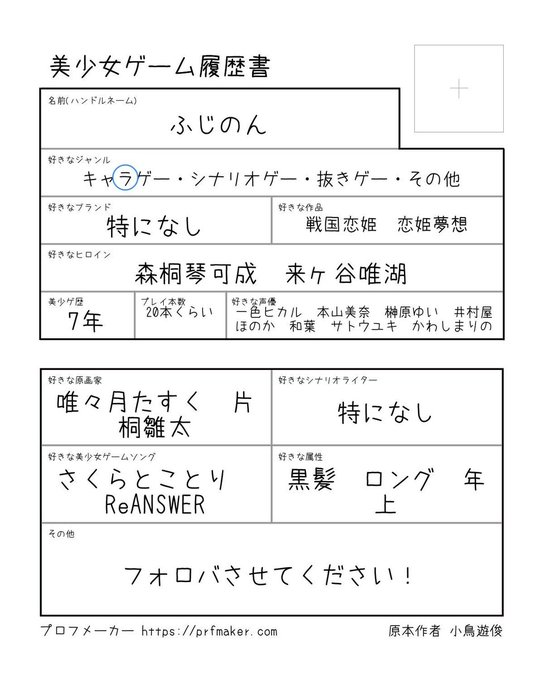 美少女ゲーム履歴書
名前(ハンドルネーム)
ふじのん
好きなジャンル
キャラゲー・シナリオゲー・抜きゲー・その他
好きなブランド
特になし
好きな作品
戦国恋姫　恋姫夢想
好きなヒロイン
森桐琴可成　来ヶ谷唯湖
美少ゲ歴
7年
プレイ本数
20本くらい
好きな声優
一色ヒカル　本山美奈　榊原ゆい　井村屋
ほのか　和葉　サトウユキ　かわしまりの
好きな原画家
唯々月たすく　片
桐雛太
好きなシナリオライター
特になし
好きな美少女ゲームソング
さくらとことり
ReANSWER
好きな属性
黒髪　ロング　年
上
その他
フォロバさせてください！
プロフメーカー https://prfmaker.com
原本作者 小鳥遊俊